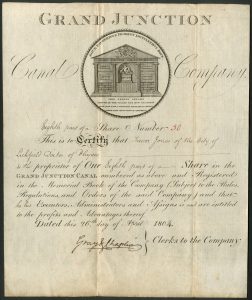 GRAND JUNCTION
Canal Company.
Eighth part of a Share Number 50
This is to Certify that Jones of the City of
Doctor of Physic
is the proprietor of One Eighth part of a Share in the
GRAND JUNCTION CANAL numbered as above and Registered
in the Memorial Book of the Company (Subject to the Rules,
Regulations, and Orders of the said Company) and that
his Executors, Administrators and Assigns is or are entitled
to the profits and Advantages thereof
Dated this 26th day of April 1804
Clerks to the Company